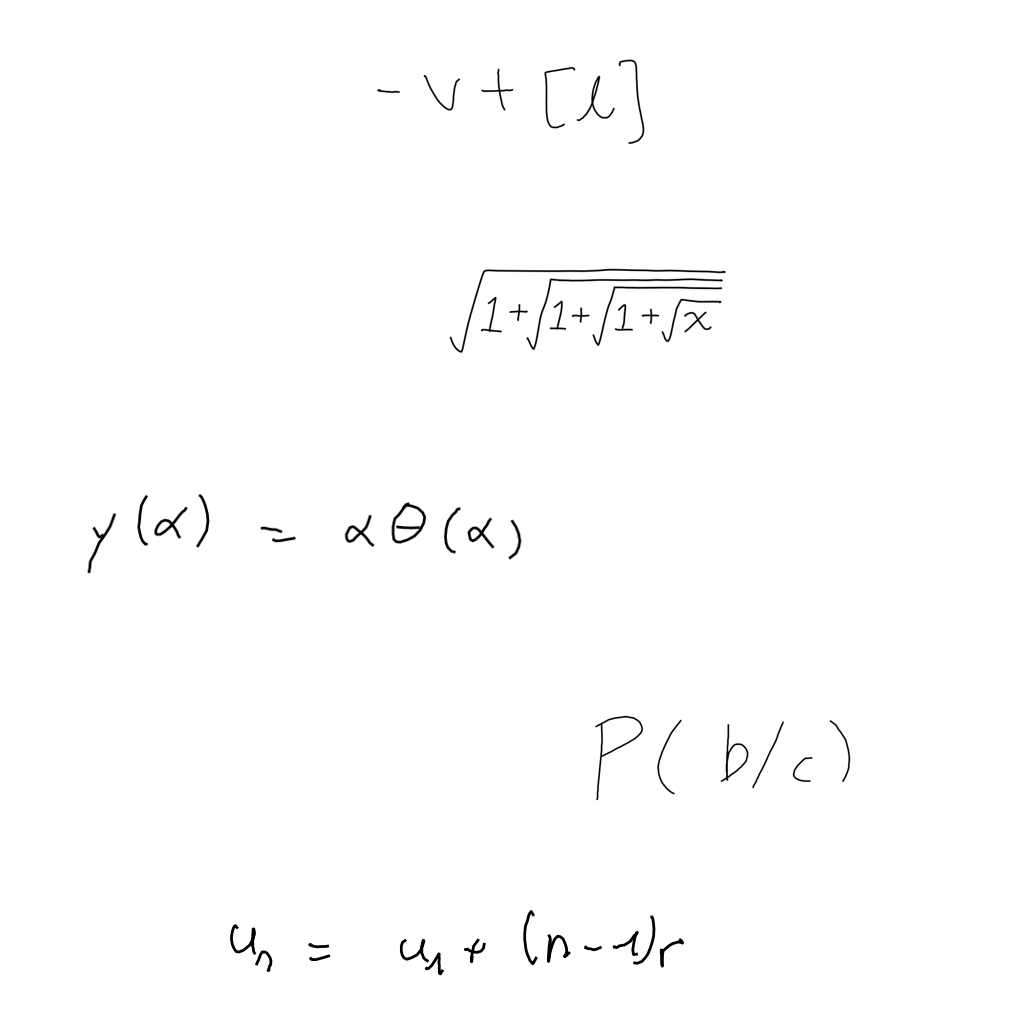 -v+[l]
√(1+√(1+√(1+√x)))
y(α) = αθ(α)
P(b/c)
uₙ = u₁ + (n-1)r